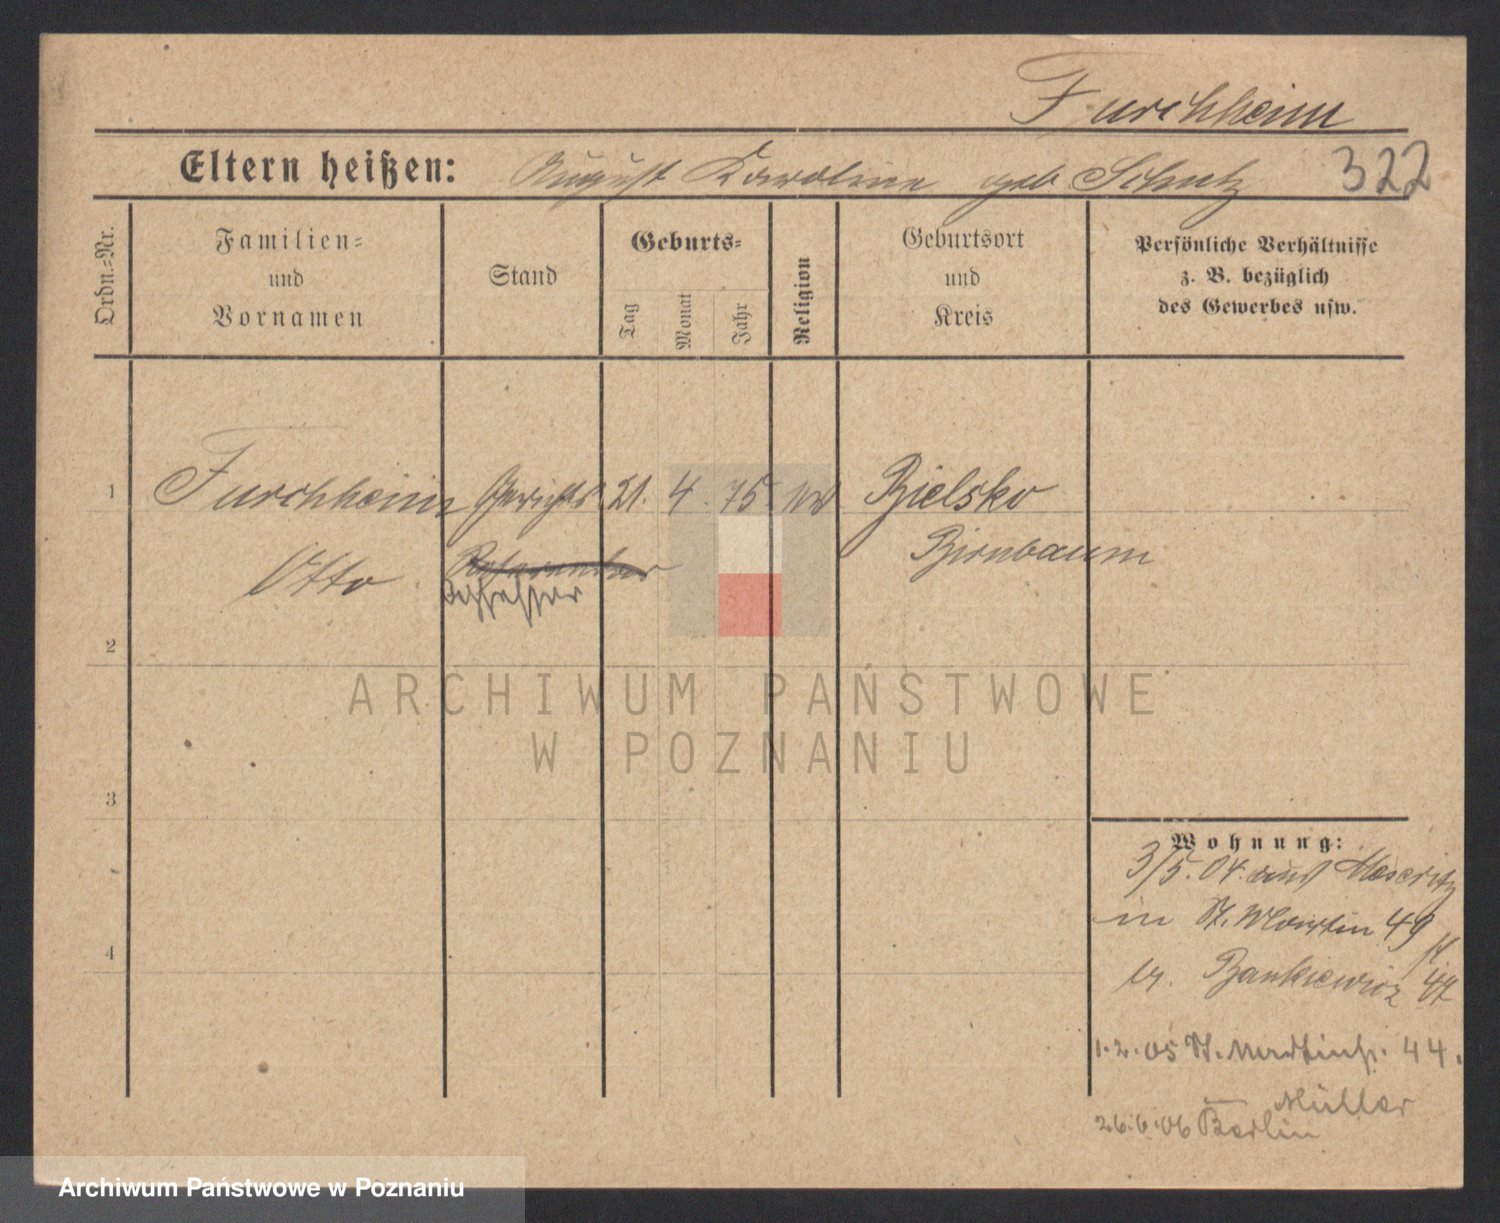 Furchheim
Eltern heißen: August Karoline geb. Schulz 322
Ordn.=Nr.
Familien=
und
Vornamen
Stand
Geburts=
Tag
Monat
Jahr
Religion
Geburtsort
und
Kreis
Persönliche Verhältnisse
z. B. bezüglich
des Gewerbes usw.
1 Furchheim Gerichts 21. 4. 75. Bielsko
Otto Referendar Birnbaum
Assessor
2
3
4
Wohnung:
3/5. 04. aus Meseritz
in St. Martin 49
Bankiewicz
1.2.05 St. Martinstr. 44.
Müller
26.6.06 Berlin
ARCHIWUM PAŃSTWOWE
W POZNANIU
Archiwum Państwowe w Poznaniu